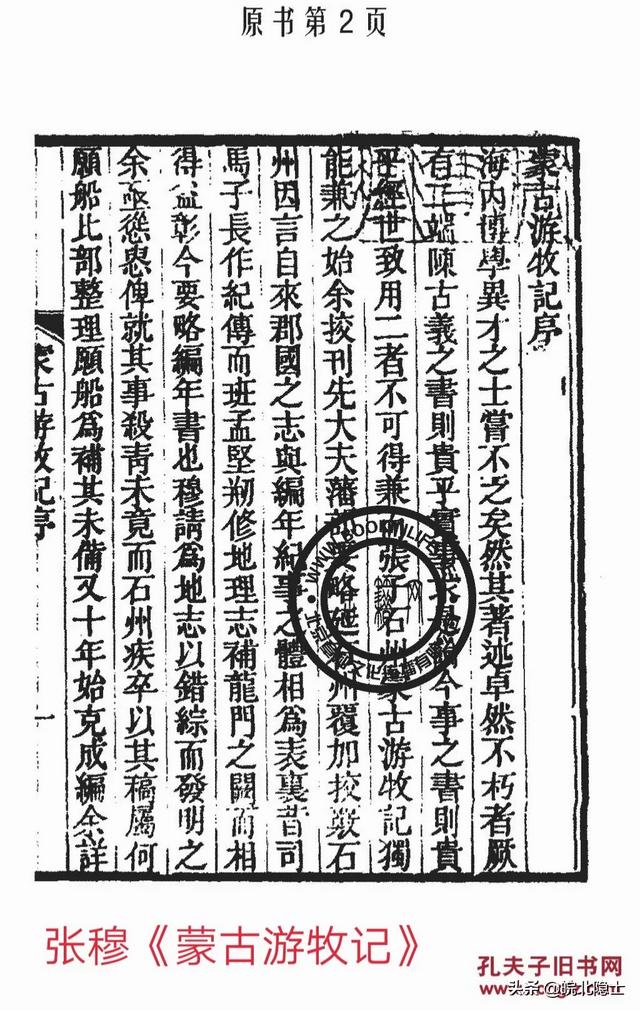 原书第2页
蒙古游牧記序
海内博學異才之士嘗不乏矣然其著述卓然不朽者厥
有二端陳古義之書則貴乎實事求是論今事之書則貴
乎經世致用二者不可得兼而張子石州蒙古游牧記獨
能兼之始余挍刊先大夫藩部要略延石州覆加挍覈石
州因言自來郡國之志與編年紀事之體相爲表裏昔司
馬子長作紀傳而班孟堅剏修地理志補龍門之闕而相
得益彰今要略編年書也穆請爲地志以錯綜而發明之
余亟慫恿俾就其事殺青未竟而石州疾卒以其稿屬何
願船比部整理願船爲補其未備又十年始克成編余詳
蒙古游牧記序
一
WWW.BOOKINLIFE
网
北京
张穆《蒙古游牧记》
孔夫子旧书网
头条@皖北隐士